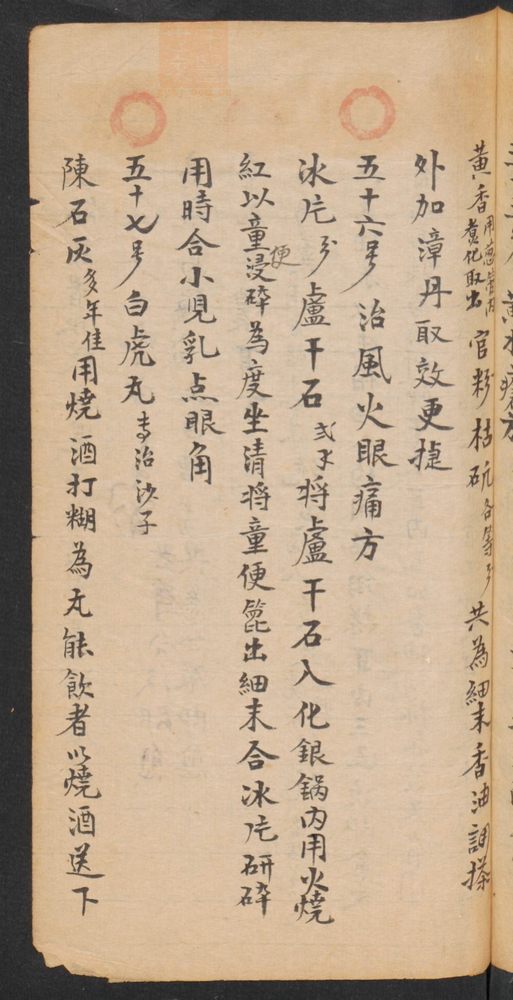 黄香用葱管內煮化取出官粉枯矾各等分共為細末香油調搽
外加漳丹取效更捷
五十六号治風火眼痛方
冰片分盧干石弍木将盧干石入化銀鍋內用火燒
紅以童便浸碎為度坐清将童便篦出細末合冰片研碎
用時合小児乳点眼角
五十七号白虎丸専治沙子
陳石灰多年佳用燒酒打糊為丸能飲者以燒酒送下